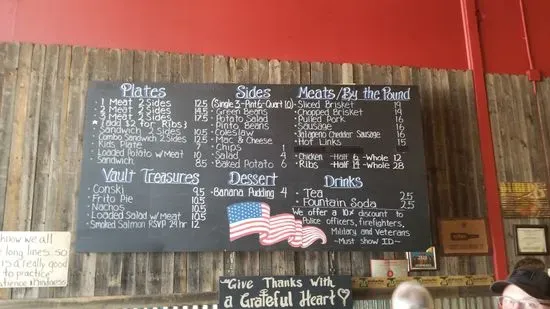 Plates
1 Meat 2 Sides 12.5
2 Meat 2 Sides 14.5
3 Meat 2 Sides 17.5
*add $2 for Ribs}
Sandwich 2 Sides 10.5
Combo Sandwich 2 Sides 12.5
Kids Plate
Loaded Potato w/Meat
Sandwich 8.5
Vault Treasures
Conski 9.5
Frito Pie 10.5
Nachos 10.5
Loaded Salad w/Meat 10.5
Smoked Salmon RSVP 24hr 12
Sides
(Single 3-Pint 6-Quart 10)
Green Beans
Potato Salad
Pinto Beans
Coleslaw
Mac & Cheese
Chips 1
Salad 4
Baked Potato 6
Dessert
Banana Pudding 4
Meats/By the Pound
Sliced Brisket 19
Chopped Brisket 19
Pulled Pork 16
Sausage 16
Jalapeño Chedder Sausage 16
Hot Links 15
Chicken -Half 6 -Whole 12
Ribs -Half 14 -Whole 28
Drinks
Tea 2.5
Fountain Soda 2.5
We offer a 10% discount to
Police officers, firefighters,
Military and Veterans
~Must show ID~
know we all
long lines. so
is a really good
to practice"
Give Thanks With
a Grateful Heart